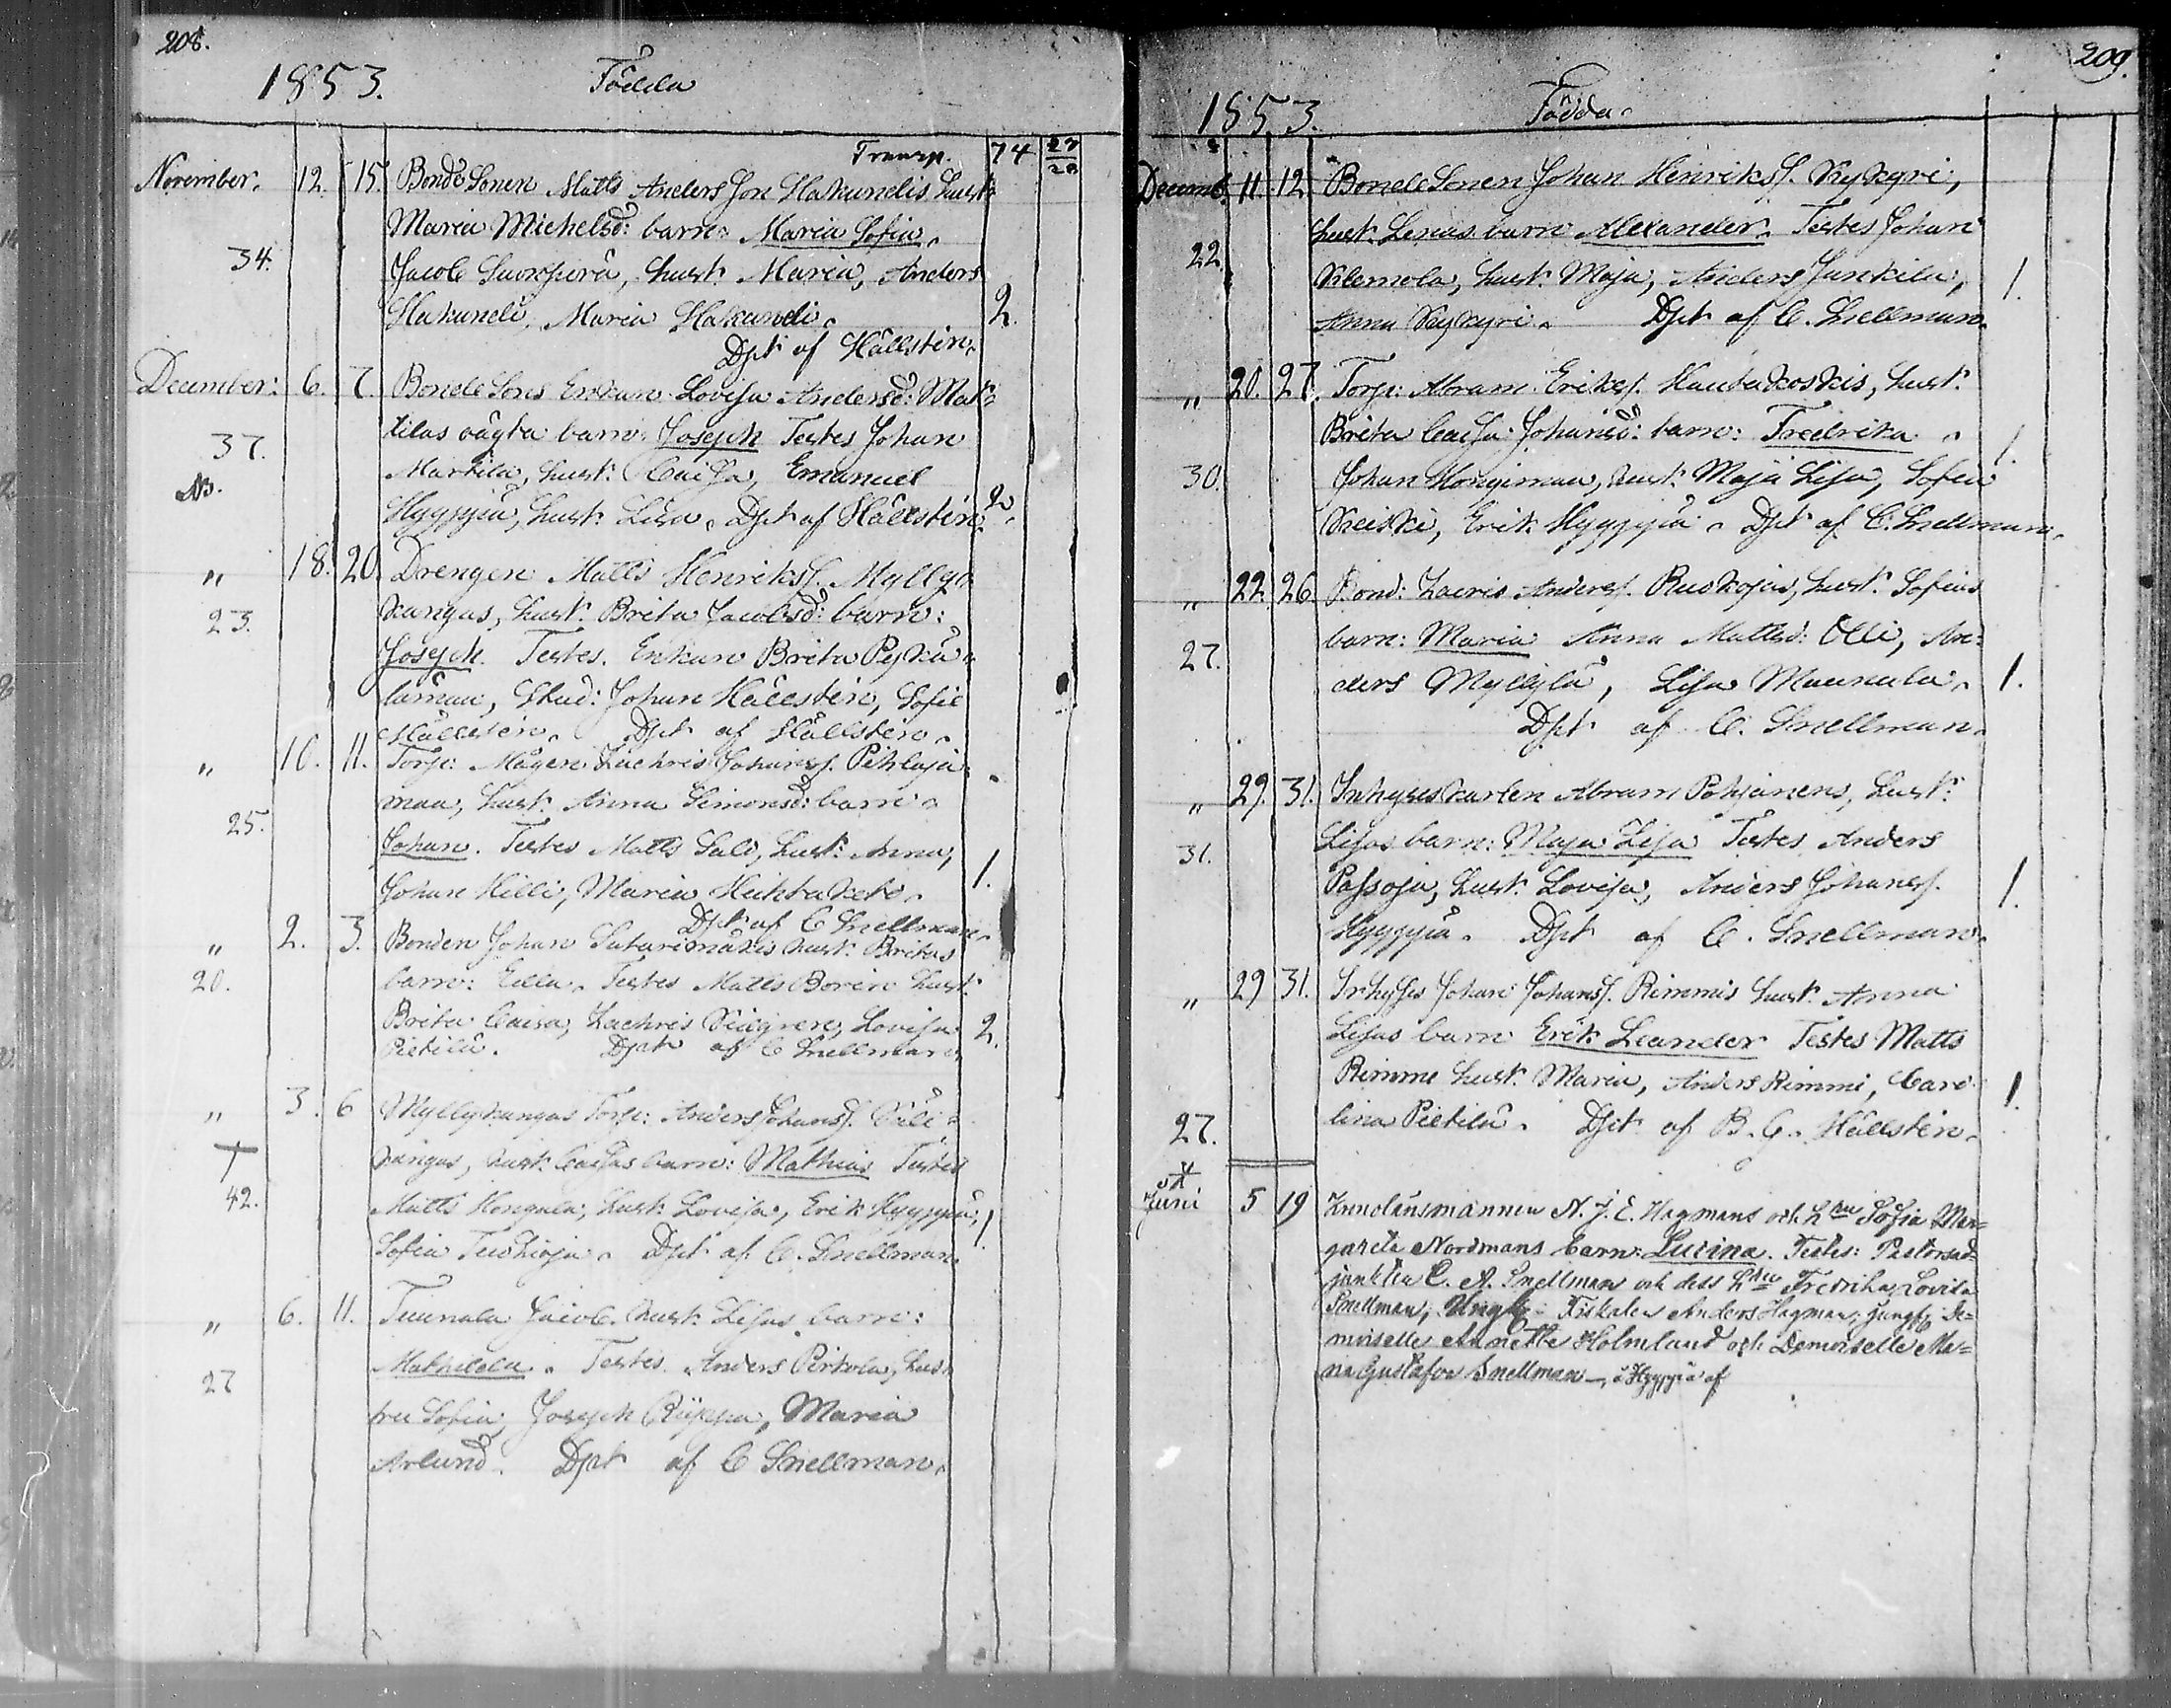 208.
1853. Födda
Transp. 74 27/28
November. 12. 15. BondeSonen Matts AndersSon Hakundis hust:
Maria Michelsd: barn: Maria Sofia.
34. Jacob Suorperä, hust: Maria, Anders
Hakundi, Maria Hakundi. 2.
Dpt af Hällstén.
December: 6. 7. BondeSons Enkan Lovisa Andersd: Mat-
37. tilas oägta barn: Joseph Testes Johan
NB. Markila, hust: Caisa, Emanuel
Hyyppiä, hust: Lisa. Dpt af Hällstén. 2.
" 18. 20. Drengen Matts Henrikss. Mylly-
23. kangas, hust: Brita Jacobsd: barn:
Joseph. Testes. Enkan Brita Pykä-
lämaa, Stud: Johan Hällstén, Sofie
Hällstén. Dpt af Hällstén.
" 10. 11. Torp: Mågen Zachris Johanss. Pihlaja-
maa, hust: Anna Simonsd: barn:
25. Johan. Testes Matts Salo, hust: Anna,
Johan Hilli, Maria Huhtaketo. 1.
Dpt af C Snellman.
" 2. 3. Bonden Johan Satarimäkis hust: Britas
20. barn: Ella. Testes Matts Borén hust:
Brita Caisa, Zachris Siegren, Lovisa 2.
Pietilä. Dpt af C Snellman
" 3. 6 Myllykangas Torp: Anders Johanss. Väli-
kangas, hust: Caisas barn: Mathias Testes
42. Matts Hongala, hust: Lovisa, Erik Hyyppiä, 1
Sofia Dpt af C. Snellman.
" 6. 11. Tuunala Jacob. hust: Lisas barn:
27 Mathilda. Testes. Anders Pirkola, hus-
tru Sofia, Joseph Riippa, Maria
Arlund. Dpt af C Snellman.
209.
1853. Födda.
Decemb. 11. 12. BondeSonen Johan Henrikss. Kykyri,
hust. Lenas barn Alexander. Testes Johan
22. Klemola, hust: Maja, Anders Junkila, 1.
Anna Kykyri. Dpt af C. Snellman.
" 20. 27. Torp: Abram Erikss. Hautakoskis, hust:
Brita Caisa Johansd: barn: Fredrika. 1.
30. Johan Hongimaa, hust: Maja Lisa, Sofia
Keiski, Erik Hyyppiä. Dpt af C. Snellman.
" 22. 26. Bond: Zacris Anderss. Ruskojas, hust: Sofias
27. barn: Maria Anna Mattsd: Olli, An-
ders Myllylä, Lisa Maunula. 1.
Dpt af C. Snellman.
" 29. 31. Inhyseskarlen Abram Pohjanens, hust:
31. Lisas barn: Maja Lisa Testes Anders
Passoja, hust: Lovisa, Anders Johanss. 1.
Hyyppiä. Dpt af C. Snellman.
" 29 31. Inhyses Johan Johanss. Rimmis hust: Anna
Lisas barn Erik Leander Testes Matts
Rimmi hust. Maria, Anders Rimmi, Caro- 1.
27. lina Pietilä. Dpt af B. G. Hällstén.
Juni 5 19 Kronolänsmannen A. J. E. Hagmans och h:au Sofia Mar=
gareta Nordmans barn: Lucina. Testes: Pastorsad=
junkten C. A. Snellman och dess h:u Fredrika Lovisa
Snellman, Ungk: Fiskalen Anders Hagman, jungfr: De=
moiselle Annette Holmlund och Demoiselle Ma=
ria Gustafva Snellman —, å Hyyppiä af